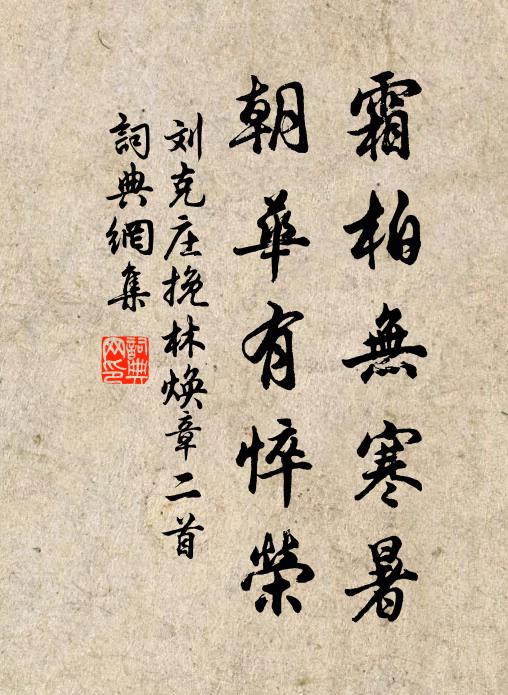 霜柏無寒暑
朝華有悴榮
刘克庄挽林煥章二首
詞典網集
詞典網印